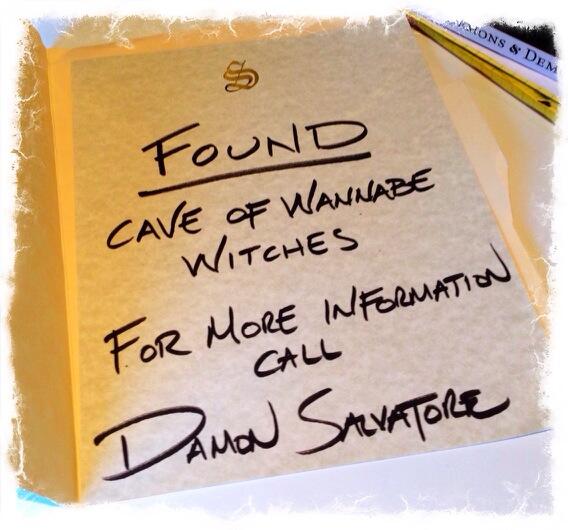 S
HONS & DEM
FOUND
CAVE OF WANNABE
WITCHES
FOR MORE INFORMATION
CALL
DAMON SALVATORE